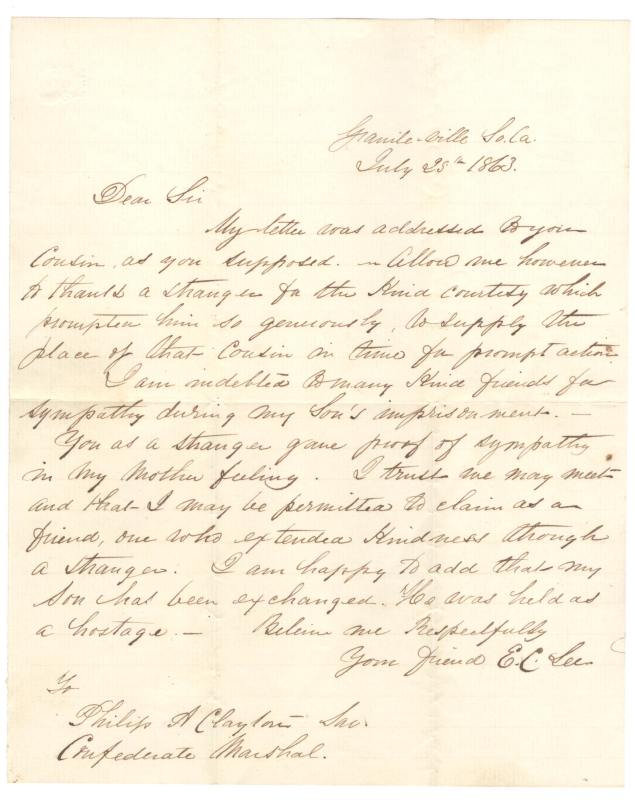 Granite-ville So. Ca.
July 25th 1863.
Dear Sir
My letter was addressed to your
Cousin, as you supposed. – Allow me however
to thank a stranger for the Kind courtesy which
prompted him so generously, to supply the
place of that Cousin in time for prompt action.
I am indebted to many Kind friends for
sympathy during my Son's imprisonment. –
You as a stranger gave proof of sympathy
in my Mother feeling. I trust we may meet
and that I may be permitted to claim as a
friend, one who extended Kindness through
a stranger. I am happy to add that my
Son has been exchanged. He was held as
a hostage. – Believe me Respectfully
Your friend E. C. Lee
To
Philip A Clayton
Confederate Marshal.